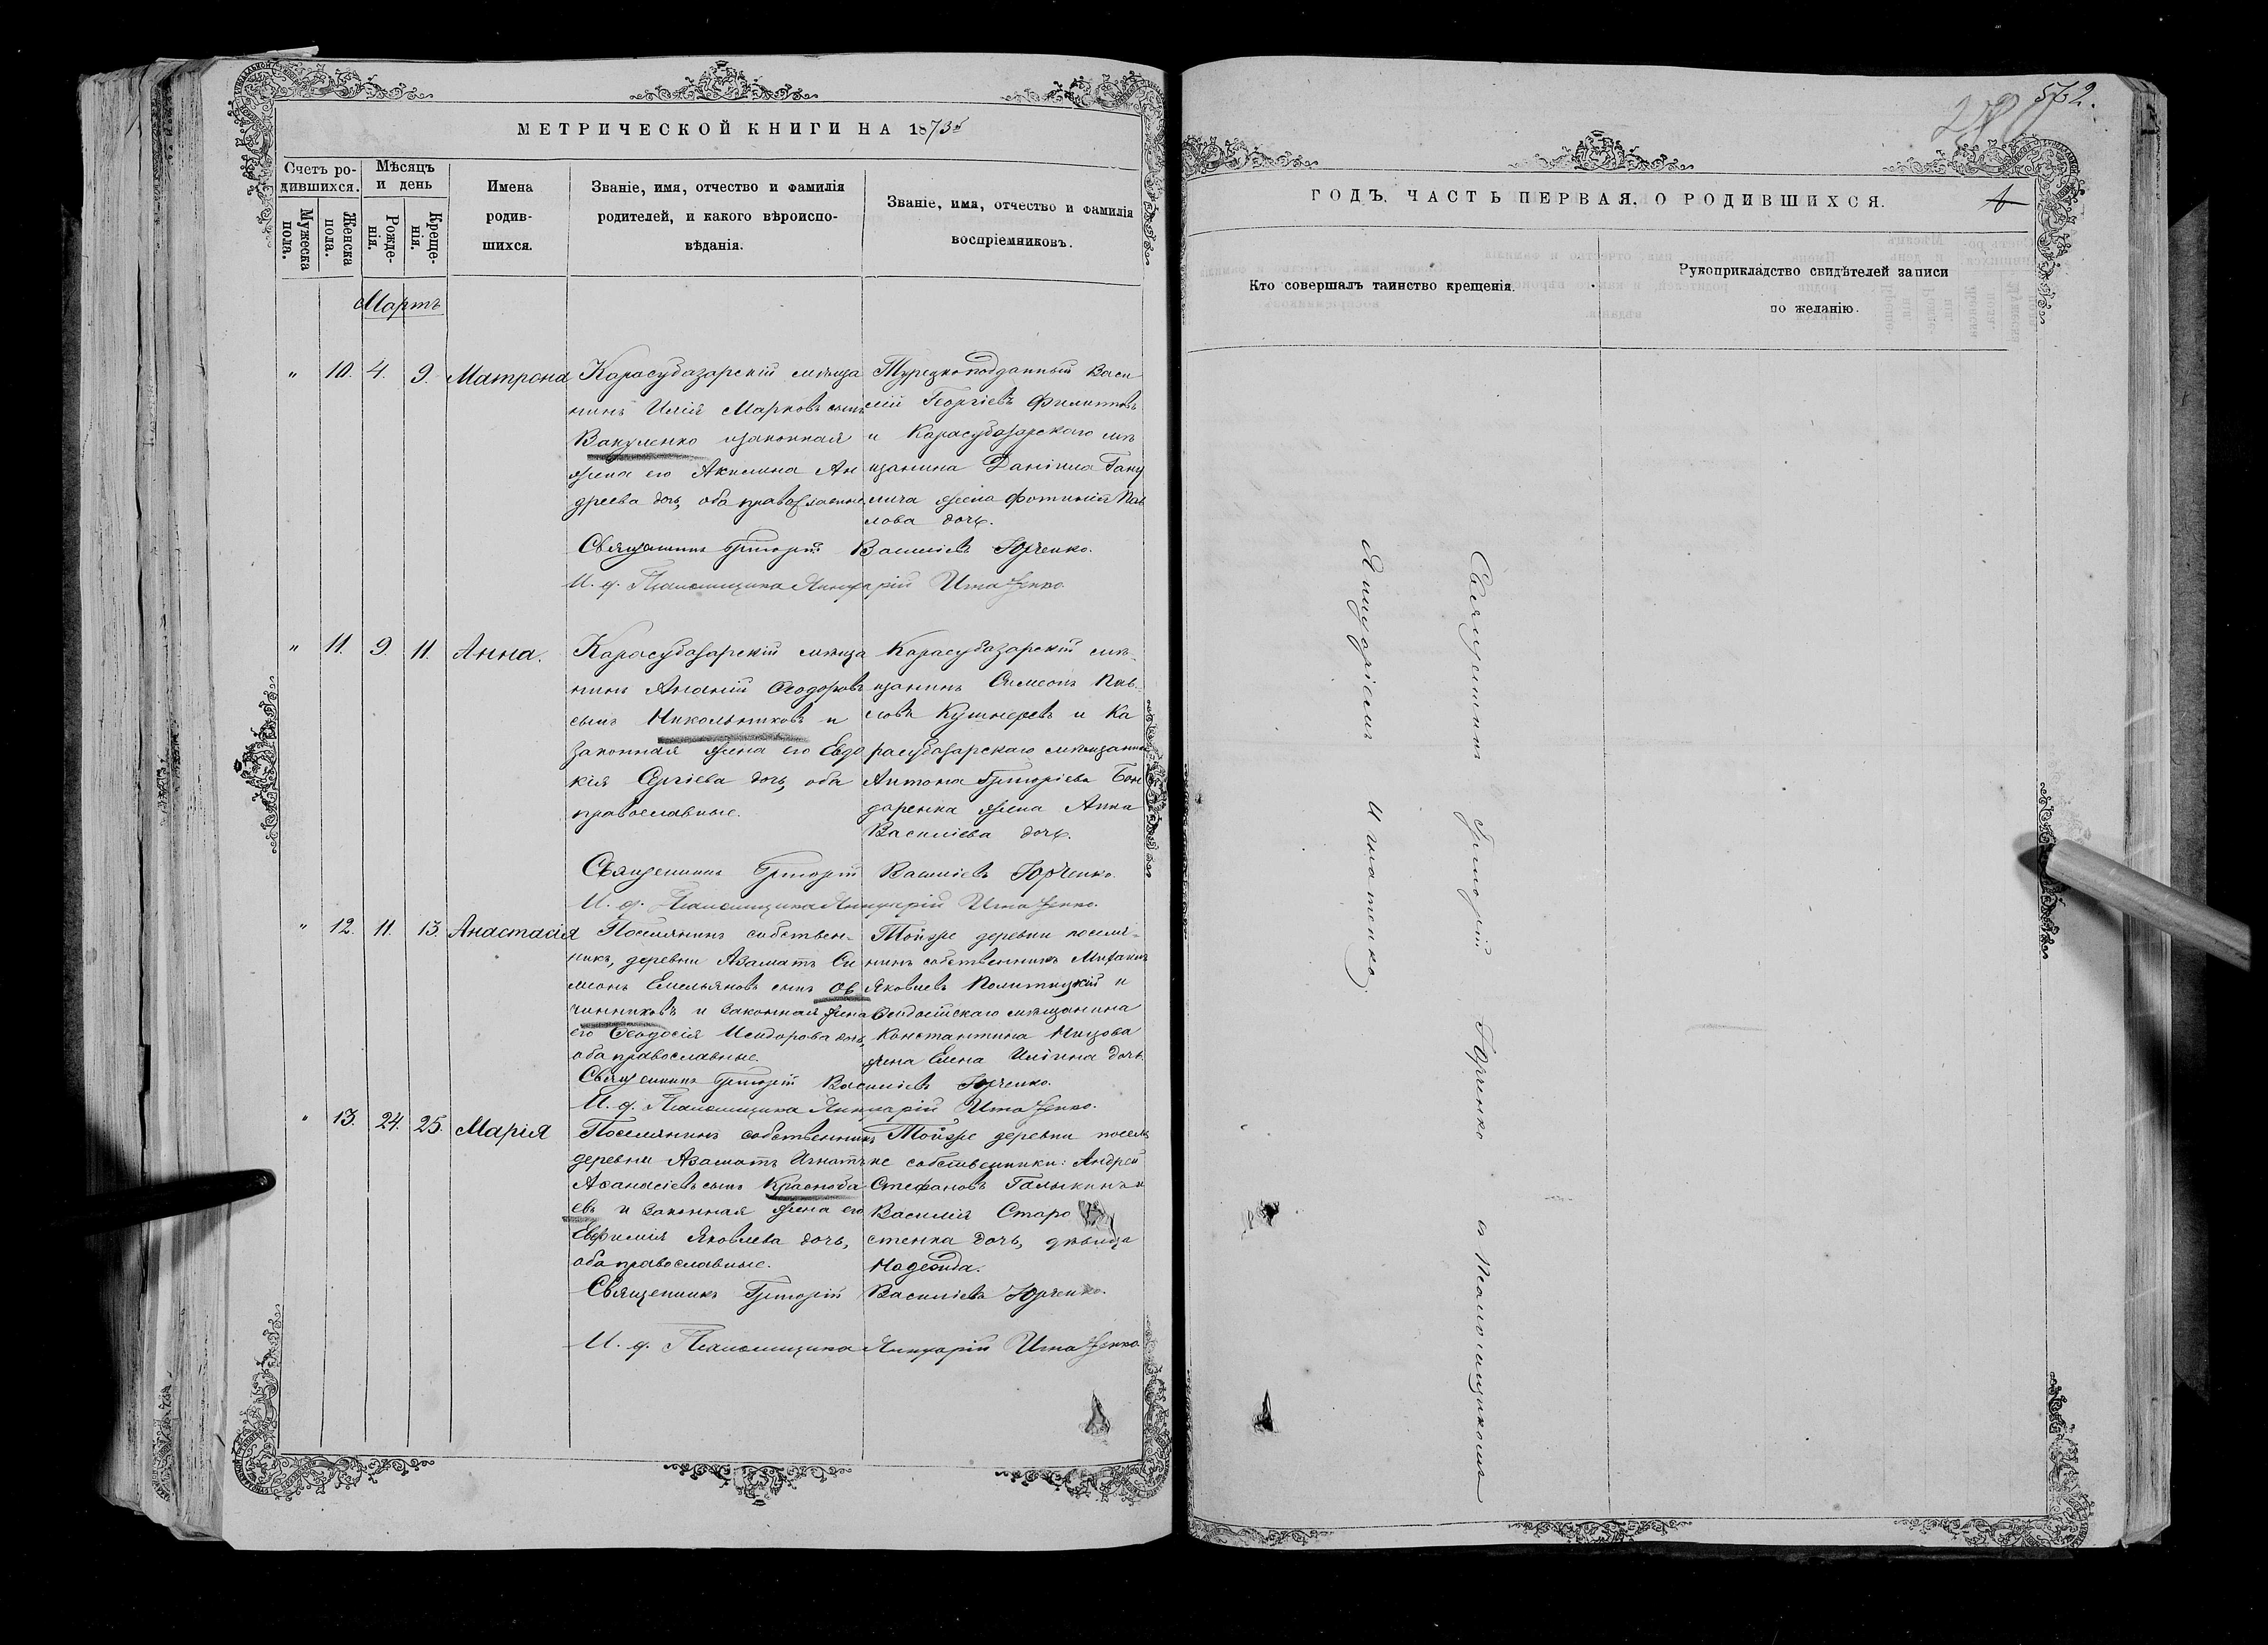 МЕТРИЧЕСКОЙ КНИГИ НА 1873й
Счетъ ро-
дившихся.
Мужеска
пола.
Женска
пола.
Мѣсяцъ
и день
Рожде-
нія.
Креще-
нія.
Имена
родив-
шихся.
Званіе, имя, отчество и фамилія
родителей, и какого вѣроиспо-
вѣданія.
Званіе, имя, отчество и фамилія
воспріемниковъ.
Мартъ
" 10. 4. 9. Матрона
Карасубазарскій мѣща
нинъ Илія Марковъ сынъ
Вакуленко и законная
жена его Акилина Ан
дреева дочь, оба православные.
Турецкоподданный Васи
лій Георгіевъ Филиповъ
и Карасубазарскаго мѣ
щанина Даніила Гану
лича жена Фотинія Пав
лова дочь.
Священникъ Григорій Василіевъ Юрченко.
И. д. Псаломщика Яннуарій Игнатенко.
" 11. 9. 11. Анна.
Карасубазарскій мѣща
нинъ Ананій Ѳеодоровъ
сынъ Никольниковъ и
законная жена его Евдо
кія Сергіева дочь, оба
православные.
Карасубазарскій мѣ-
щанинъ Симеонъ Пав-
ловъ Кушнеревъ и Ка
расубазарскаго мѣщанина
Антона Григоріева Бон
даренка жена Анна
Василіева дочь.
Священникъ Григорій Василіевъ Юрченко.
И. д. Псаломщика Яннуарій Игнатенко.
" 12. 11. 13. Анастасія
Поселянинъ собствен-
никъ, деревни Азаматъ Си
меонъ Емельяновъ сынъ Ов
чинниковъ и законная жена
его Ѳеодосія Исидорова дочь,
оба православные.
Тойже деревни поселя-
нинъ собственникъ Михаилъ
Яковлевъ Политицкій и
Ѳеодосійскаго мѣщанина
Константина Ницова
жена Елена Иліина дочь.
Священникъ Григорій Василіевъ Юрченко.
И. д. Псаломщика Яннуарій Игнатенко.
" 13. 24. 25. Марія
Поселянинъ собственникъ
деревни Азаматъ Игнатъ
Аѳанасіевъ сынъ Краснoба
евъ и законная жена его
Евфимія Яковлева дочь,
оба православные.
Тойже деревни поселя
не собственники: Андрей
Стефановъ Галыкинъ и
Василія Старо
стенка дочь, дѣвица
Надежда.
Священникъ Григорій Василіевъ Юрченко.
И. д. Псаломщика Яннуарій Игнатенко.
572.
ГОДЪ. ЧАСТЬ ПЕРВАЯ. О РОДИВШИХСЯ.
Кто совершалъ таинство крещенія.
Рукоприкладство свидѣтелей записи
по желанію.
Священникъ Григорій Юрченко съ Псаломщикомъ
Яннуаріемъ Игнатенко.